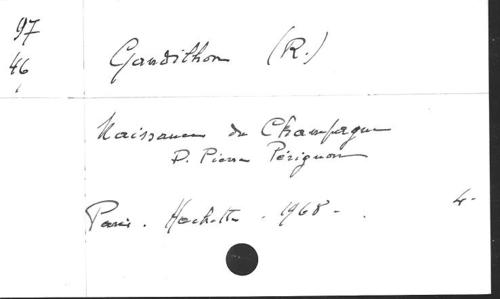 97
46
Gandilhon (R.)
Naissance du Champagne
D. Pierre Pérignon
Paris. Hachette. 1968.
4.